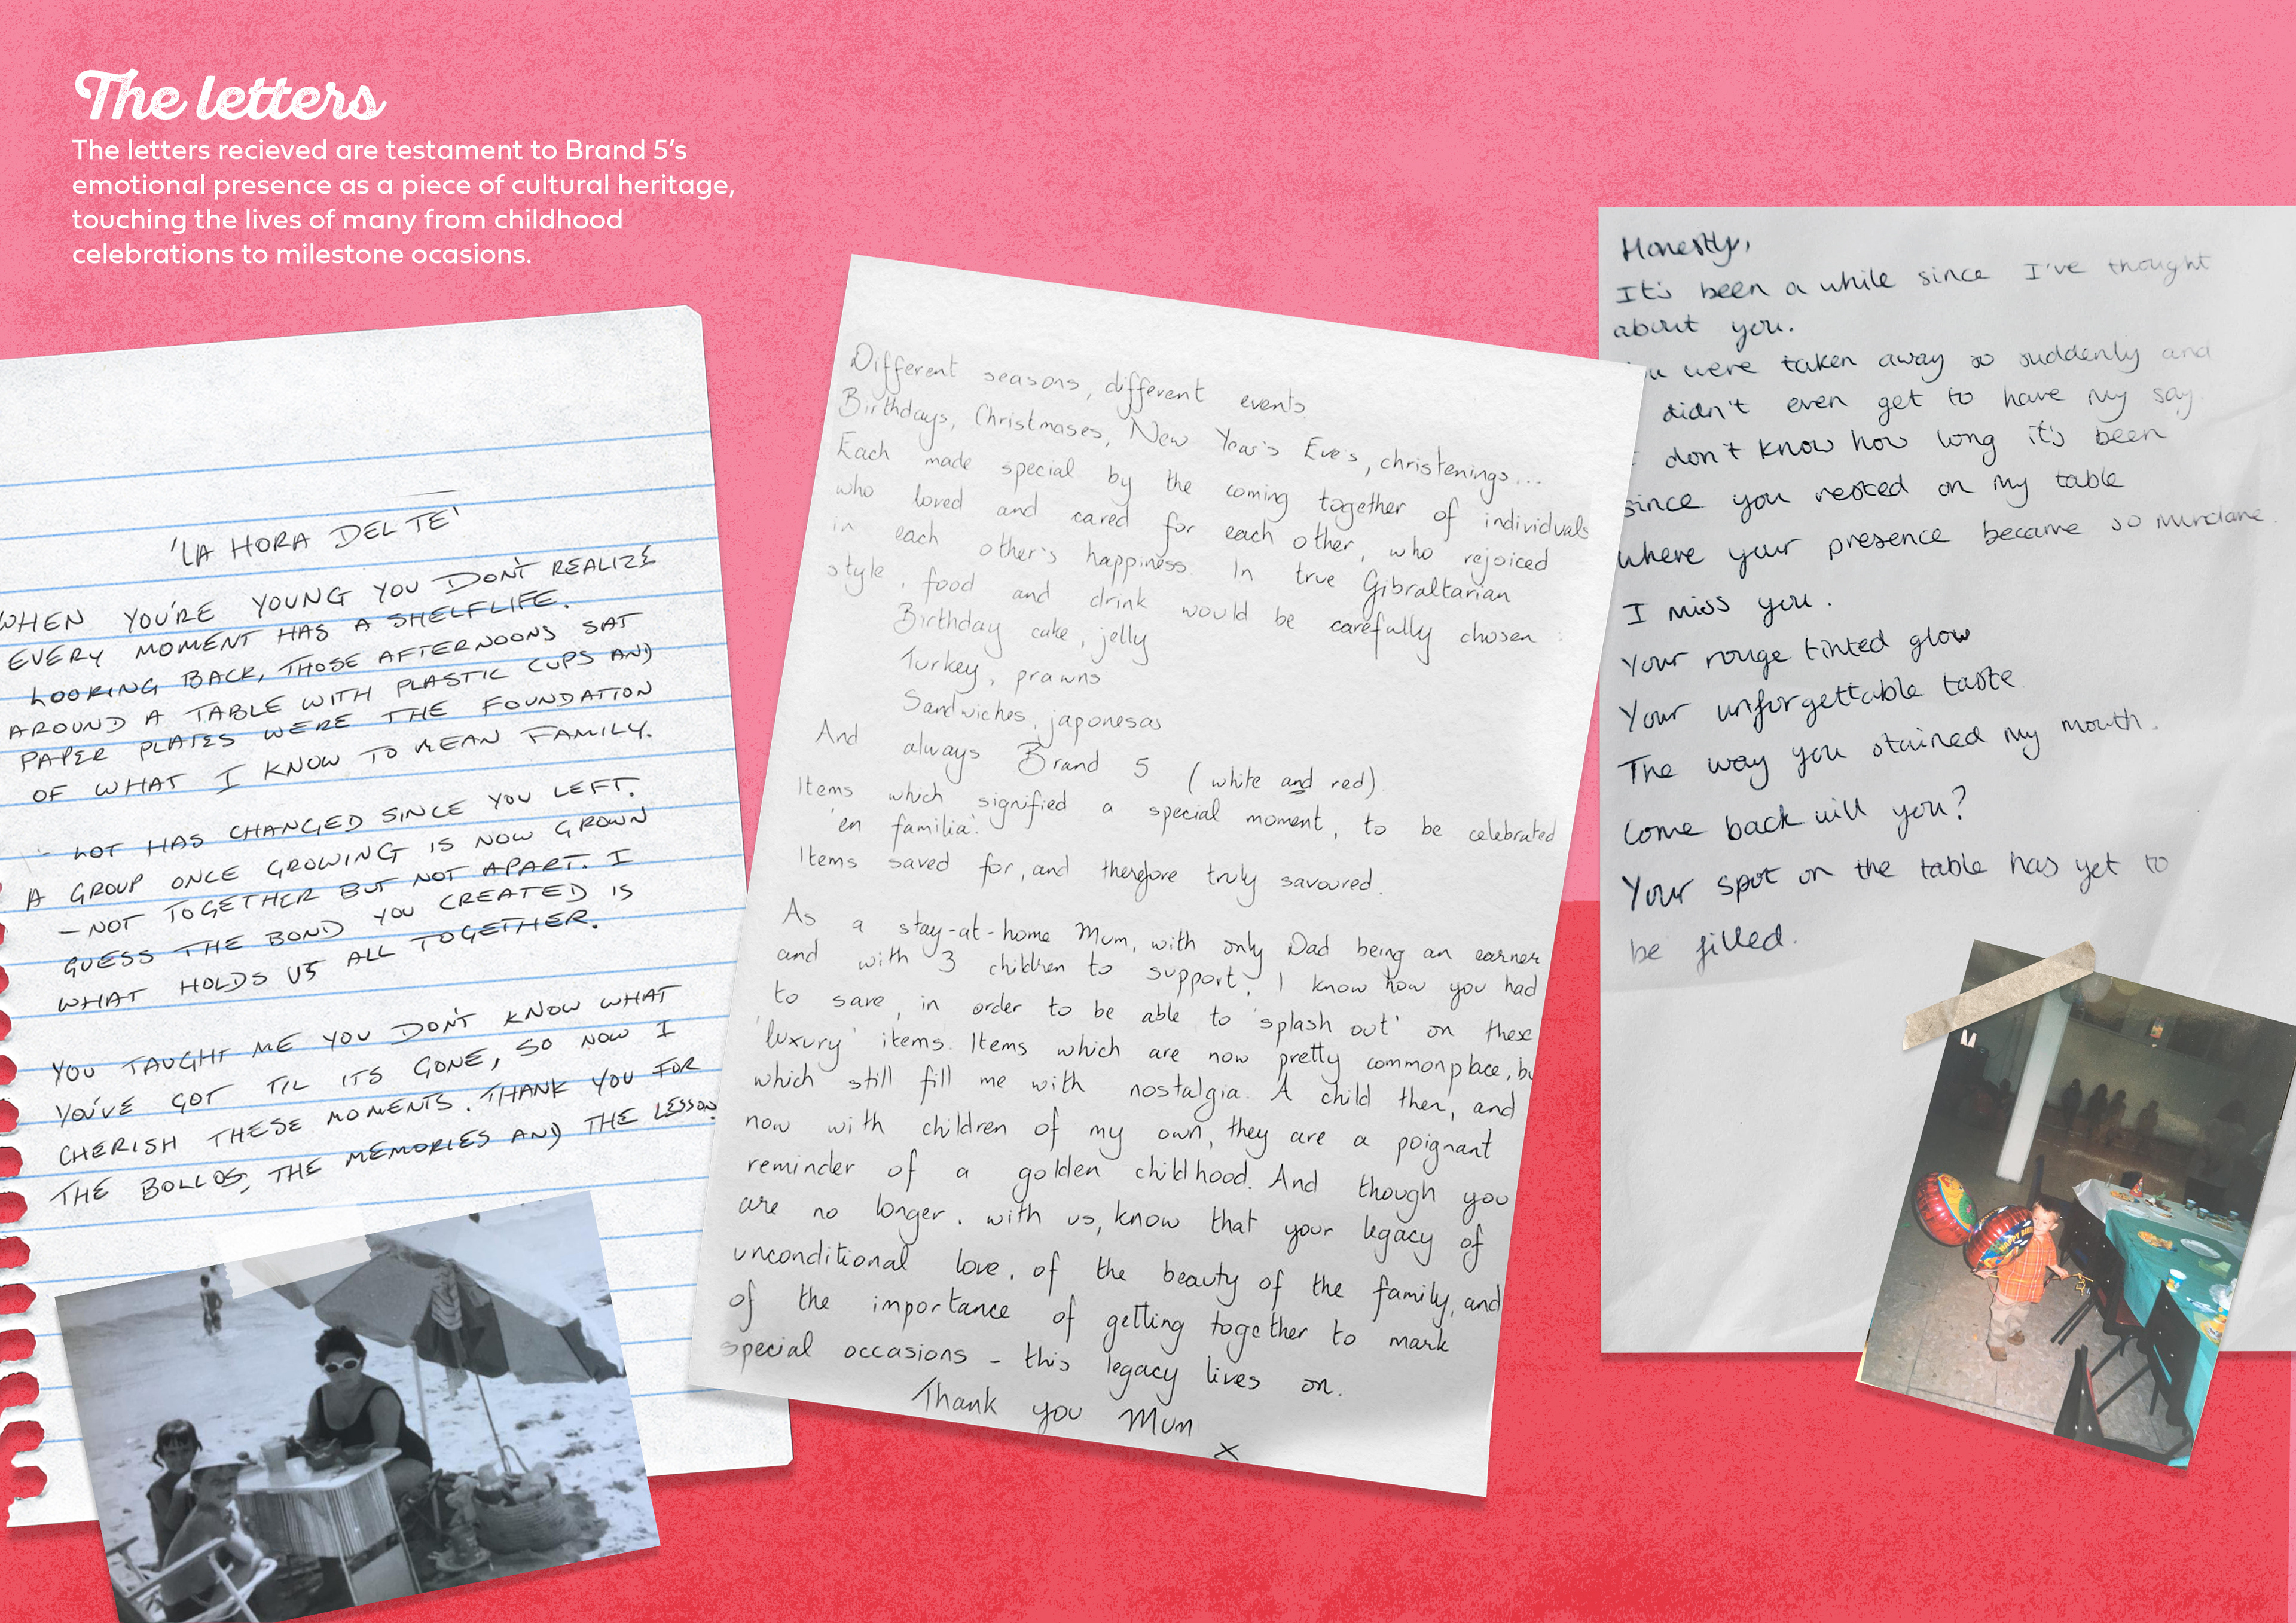 The letters
The letters recieved are testament to Brand 5's
emotional presence as a piece of cultural heritage,
touching the lives of many from childhood
celebrations to milestone ocasions.
'LA HORA DEL TE'
WHEN YOU'RE YOUNG YOU DON'T REALIZE
EVERY MOMENT HAS A SHELFLIFE.
LOOKING BACK, THOSE AFTERNOONS SAT
AROUND A TABLE WITH PLASTIC CUPS AND
PAPER PLATES WERE THE FOUNDATION
OF WHAT I KNOW TO MEAN FAMILY.
LOT HAS CHANGED SINCE YOU LEFT.
A GROUP ONCE GROWING IS NOW GROWN
- NOT TOGETHER BUT NOT APART. I
GUESS THE BOND YOU CREATED IS
WHAT HOLDS US ALL TOGETHER.
YOU TAUGHT ME YOU DON'T KNOW WHAT
YOU'VE GOT TIL ITS GONE, SO NOW I
CHERISH THESE MOMENTS. THANK YOU FOR
THE BOLLOS, THE MEMORIES AND THE LESSON
Different seasons, different events.
Birthdays, Christmases, New Year's Eve's, christenings...
Each made special by the coming together of individuals
who loved and cared for each other, who rejoiced
in each other's happiness. In true Gibraltarian
style, food and drink would be carefully chosen:
Birthday cake, jelly
Turkey, prawns
Sandwiches, japonesas
And always Brand 5 (white and red)
Items which signified a special moment, to be celebrated
'en familia'.
Items saved for, and therefore truly savoured.
As a stay-at-home Mum, with only Dad being an earner
and with 3 children to support, I know how you had
to save, in order to be able to 'splash out' on these
'luxury' items. Items which are now pretty commonplace, bu
which still fill me with nostalgia. A child then, and
now with children of my own, they are a poignant
reminder of a golden childhood. And though you
are no longer with us, know that your legacy of
unconditional love, of the beauty of the family, and
of the importance of getting together to mark
special occasions - this legacy lives on.
Thank you Mum
x
Honestly,
It's been a while since I've thought
about you.
were taken away so suddenly and
didn't even get to have my say.
don't know how long it's been
since you rested on my table
where your presence became so mundane.
I miss you.
Your rouge tinted glow
Your unforgettable taste
The way you stained my mouth.
Come back will you?
Your spot on the table has yet to
be filled.